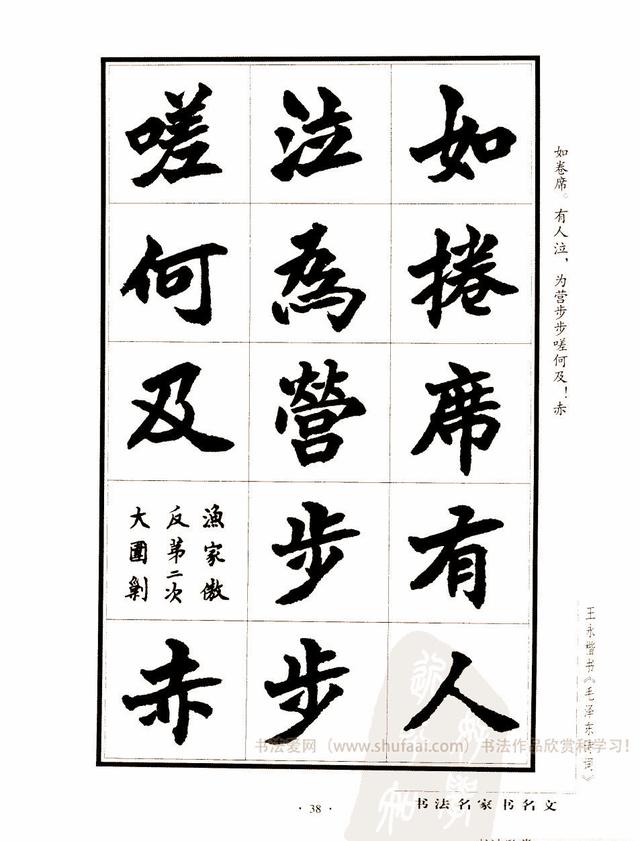 如捲席有人
泣為營步步
嗟何及
漁家傲
反第二次
大圍剿
赤
如卷席。有人泣，为营步步嗟何及！赤
王永楷书《毛泽东诗词》
书法爱网（www.shufaai.com）书法作品欣赏和学习！
书法名家书名文
· 38 ·